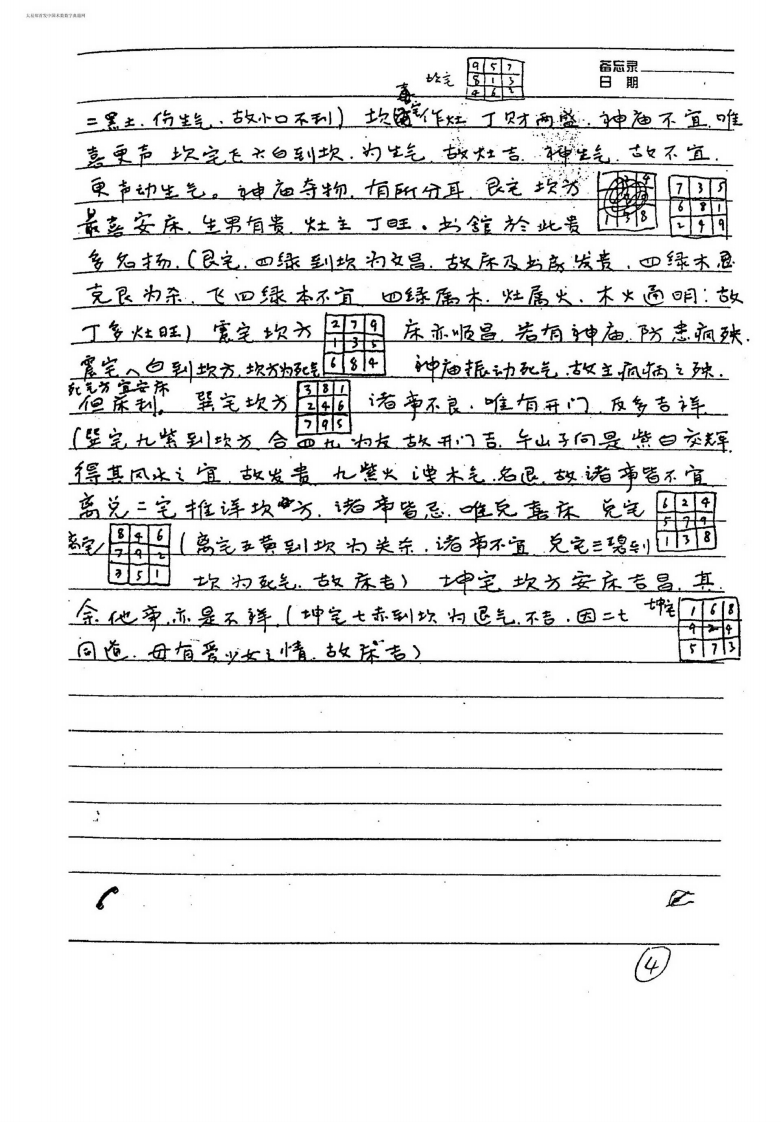 备忘录
日期
坎宅
9 5 7
8 1 3
4 6 2
二黑土.伤生气.故小口不利) 坎宅作灶 丁财两盛.神庙不宜.唯
喜更声 坎宅飞六白到坎.为生气.故灶吉.神生气.故不宜.
更声动生气。神庙夺物.有所分耳.艮宅 坎方
7 3 5
6 8 1
2 4 9
最喜安床.生男有贵.灶主丁旺.书馆於此贵
多名扬.(艮宅.四绿到坎为文昌.故床及书房发贵.四绿木忌
克艮为杀.飞四绿本不宜 四绿属木.灶属火.木火通明:故
丁多灶旺) 震宅坎方
2 7 9
1 3 5
6 8 4
床亦顺昌.若有神庙.防患疯殃.
震宅八白到坎方.坎方为死气 神庙振动死气.故主疯病之殃.
死气方宜安床
但床利。 巽宅坎方
3 8 1
2 4 6
7 9 5
诸事不良.唯有开门 反多吉祥
(巽宅九紫到坎方 合四九为友 故开门吉.午山子向是紫白交辉
得其风水之宜.故发贵 九紫火 洩木气.名退.故诸事皆不宜
离兑二宅推详坎方.诸事皆忌.唯兑喜床 兑宅
6 2 4
5 7 9
1 3 8
离宅
8 4 6
7 9 2
3 5 1
(离宅五黄到坎为关杀.诸事不宜 兑宅三碧到
坎为死气.故床吉) 坤宅 坎方安床吉昌.其
余他事.亦是不祥.(坤宅七赤到坎为退气.不吉.因二七
坤宅
1 6 8
9 2 4
5 7 3
同道.母有爱少女之情.故床吉)
④